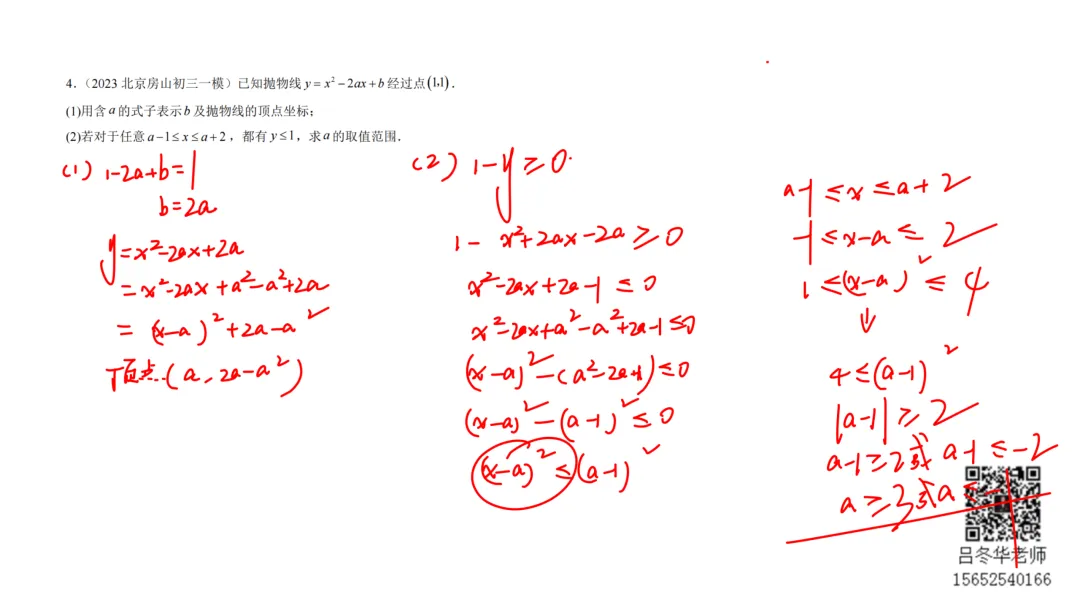 4.（2023 北京房山初三一模）已知抛物线 y = x² − 2ax + b 经过点 (1,1).
(1)用含 a 的式子表示 b 及抛物线的顶点坐标；
(2)若对于任意 a−1≤x≤a+2，都有 y≤1，求 a 的取值范围.
(1) 1-2a+b=1
b=2a
y=x²-2ax+2a
=x²-2ax+a²-a²+2a
=(x-a)²+2a-a²
顶点(a, 2a-a²)
(2) 1-y≥0
1-x²+2ax-2a≥0
x²-2ax+2a-1≤0
x²-2ax+a²-a²+2a-1≤0
(x-a)²-(a²-2a+1)≤0
(x-a)²-(a-1)²≤0
(x-a)²≤(a-1)²
a-1≤x≤a+2
-1≤x-a≤2
1≤(x-a)²≤4
⇓
4≤(a-1)²
|a-1|≥2
a-1≥2或a-1≤-2
a≥3或a≤-1
吕冬华老师
15652540166